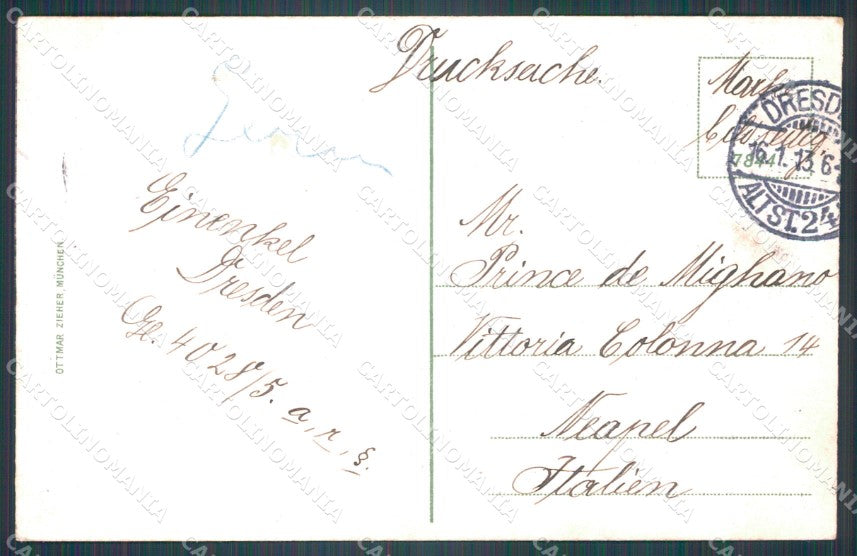 Drucksache.
Marke
7844
DRESDEN
16.1.13.6-
ALTST.24
Einenkel
Dresden
Ge. 4028/5. a, r, §.
Mr.
Prince de Mighano
Vittoria Colonna 14
Neapel
Italien
OTTMAR ZIEHER, MÜNCHEN
CARTOLINOMANIA